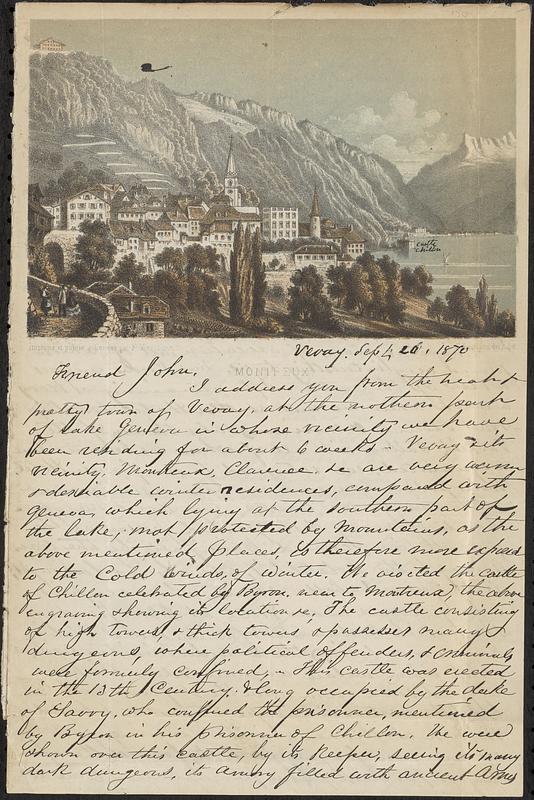 castle
Chillon
Vevay. Sept 20, 1870
MONTREUX
Friend John,
I address you from the neat &
pretty town of Vevay, at the northern part
of Lake Geneva in whose vicinity we have
been residing for about 6 weeks - Vevay & its
vicinity, Montreux, Clarence &c are very warm
& desirable winter residences, compared with
Geneva, which lying at the southern part of
the lake, not protected by Mountains, as the
above mentioned places, is therefore more exposed
to the Cold winds, of winter. We visited the castle
of Chillon celebrated by Byron, near to Montreux, the above
engraving showing its location &c, The castle consisting
of high towers, & thick towers, & possesses many
dungeons, where political offenders, & criminals
were formerly confined, - This castle was erected
in the 13th Century. & long occupied by the duke
of Savoy, who confined the prisoner, mentioned
by Byron in his prisoner of Chillon. We were
shown over this castle, by its keeper, seeing its many
dark dungeons, its armory filled with ancient Arms